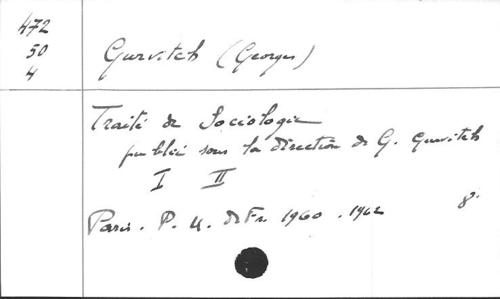 472
50
4
Gurvitch (Georges)
Traité de Sociologie
publié sous la direction de G. Gurvitch
I II
Paris. P. U. de Fr. 1960. 1962 8°